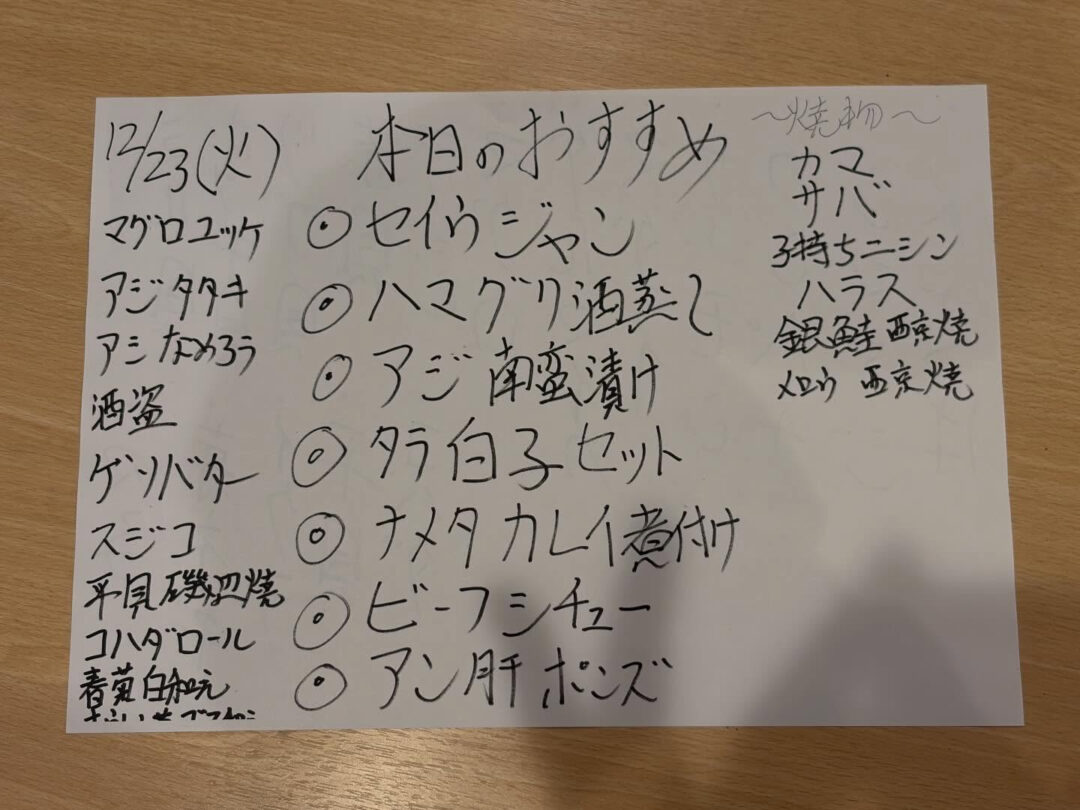 12/23(火)
本日のおすすめ
マグロユッケ
アジタタキ
アジなめろう
酒盗
ゲソバター
スジコ
平貝磯辺焼
コハダロール
春菊白和え
◎セイウジャン
◎ハマグリ酒蒸し
◎アジ南蛮漬け
◎タラ白子セット
◎ナメタカレイ煮付け
◎ビーフシチュー
◎アン肝ポンズ
～焼物～
カマ
サバ
子持ちニシン
ハラス
銀鮭西京焼
メロウ西京焼